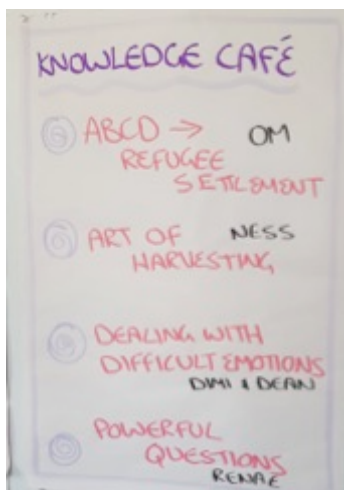 KNOWLEDGE CAFÉ
ABCD → OM
REFUGEE
SETTLEMENT
ART OF NESS
HARVESTING
DEALING WITH
DIFFICULT EMOTIONS
DIMI & DEAN
POWERFUL
QUESTIONS
RENAE